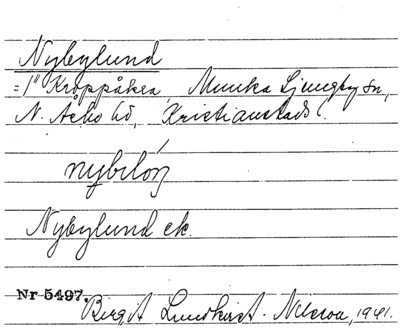 Nybylund
=1" Kroppåkra, Munka Ljungby sn,
N. Åsbo hd, Kristianstads l.
nybilóŋ
Nybylund ek.
Nr 5497.
Birgit Lundkvist-Nilsson, 1941.